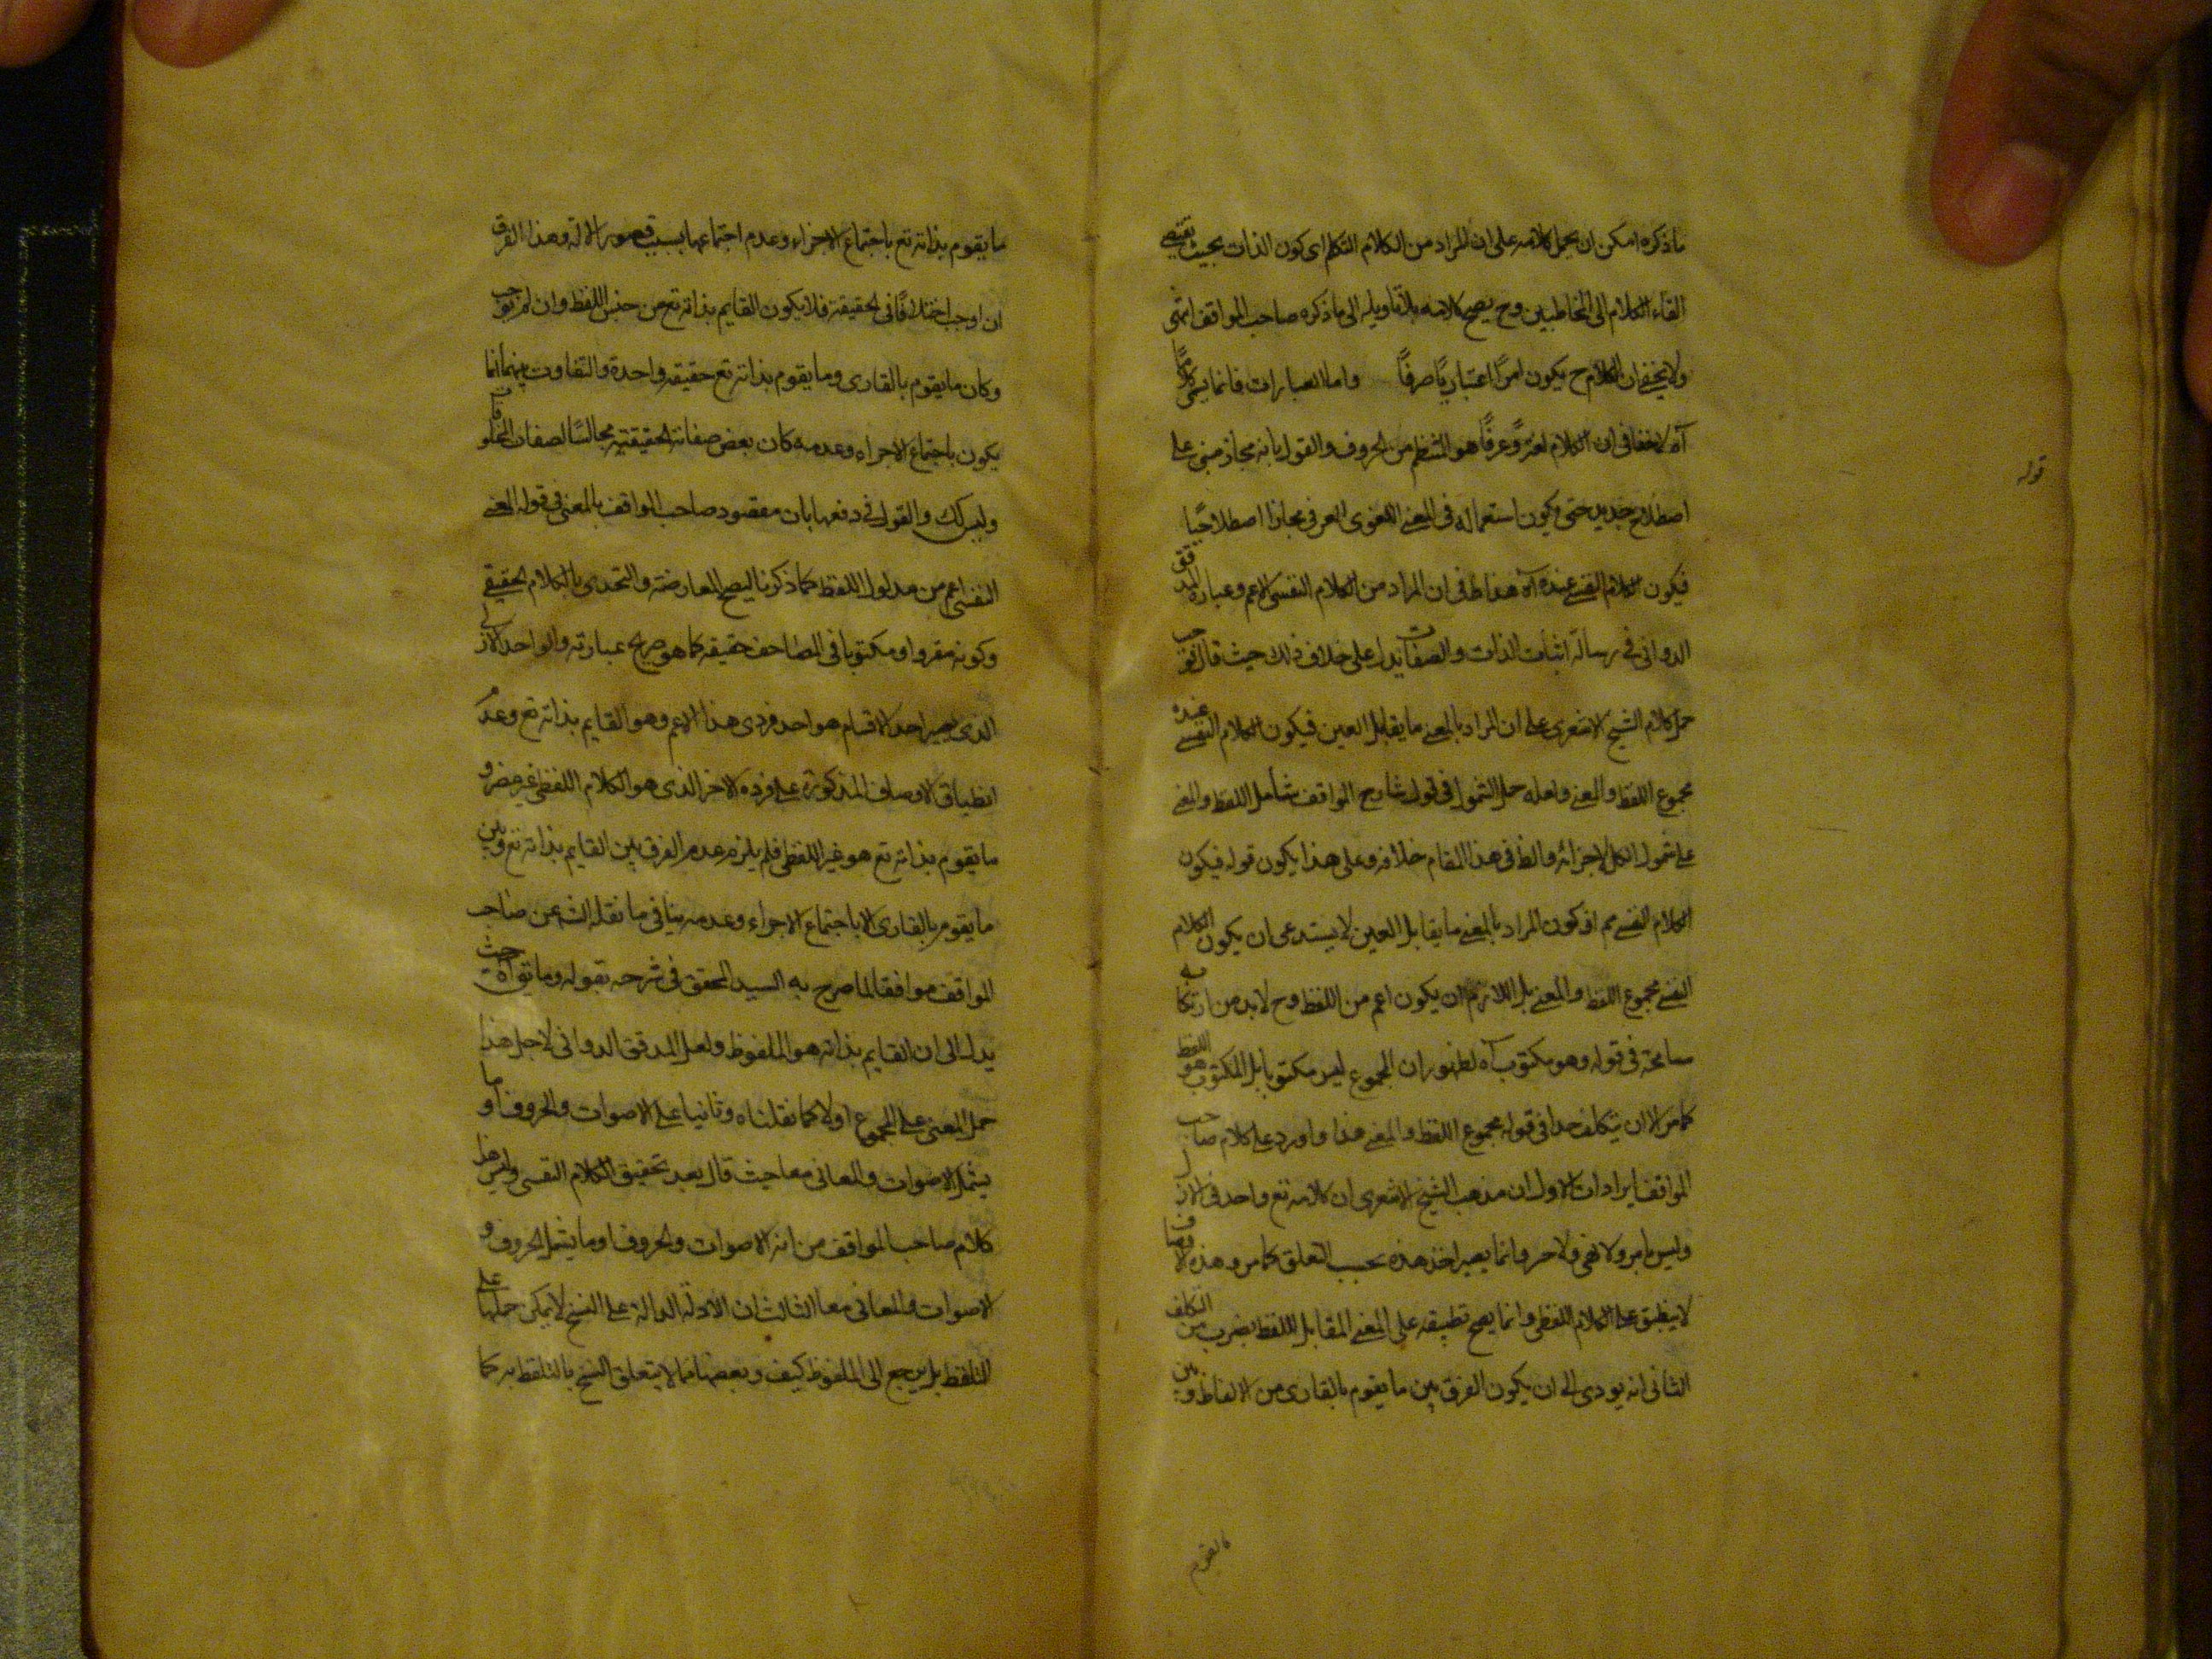 ما ذكره امكن ان يحمل كلامه على ان المراد من الكلام التكلم اى كون الذات بحيث يقتضى
القاء الكلام الى المخاطبين وح يصح كلامه بلا تاويله الى ما ذكره صاحب المواقف انتهى
ولا يخفى ان الكلام ح يكون امرًا اعتباريًا صرفًا واما العبارات فانما يسمى كلامًا
آه لا خفا فى ان الكلام لغة وعرفًا هو المنتظم من الحروف والقول بانه مجاز مبنى على
قوله
اصطلاح جديد حتى يكون استعماله فى المعنى اللغوى العرفى مجازا اصطلاحيًا
فيكون الكلام النفسى عنده آه هذا ظ فى ان المراد من الكلام النفسى الاعم وعبارة المدقق
الدوانى فى رسالة اثبات الذات والصفات يدل على خلاف ذلك حيث قال
حمل كلام الشيخ الاشعرى على ان المراد بالمعنى ما يقابل العين فيكون الكلام النفسى عنده
مجموع اللفظ والمعنى ولعله حمل الشمول فى قول شارح المواقف شامل اللفظ والمعنى
على شمول الكل لاجزائه والظ فى هذا المقام خلافه وعلى هذا يكون قوله فيكون
الكلام النفسى مم اذ كون المراد بالمعنى ما يقابل العين لا يستدعى ان يكون الكلام
النفسى مجموع اللفظ والمعنى بل اللازم ان يكون اعم من اللفظ وح لا بد من ارتكاب
مسامحة فى قوله وهو مكتوب آه لظهور ان المجموع ليس مكتوبا بل المكتوب هو اللفظ
كما مر الا ان يتكلف حدا فى قوله مجموع اللفظ والمعنى هذا واورد على كلام صاحب
المواقف ايرادات الاول ان مذهب الشيخ الاشعرى ان كلامه تع واحد فى الازل
وليس بامر ولا نهى ولا خبر وانما يصير احد هذه بحسب التعلق كما مر وهذه الاوصاف
لا ينطبق على الكلام اللفظى وانما يصح تطبيقه على المعنى المقابل اللفظ بضرب من التكلف
الثانى انه يودى الى ان يكون الفرق بين ما يقوم بالقارى من الالفاظ وبين
ما يقوم
ما يقوم بذاته تع باجتماع الاجزاء وعدم اجتماعها بسبب قصور الالة وهذا الفرق
ان اوجب اختلافًا فى الحقيقة فلا يكون القايم بذاته تع من جنس اللفظ وان لم يوجب
وكان ما يقوم بالقارى وما يقوم بذاته تع حقيقة واحدة والتفاوت بينهما انما
يكون باجتماع الاجزاء وعدمه كان بعض صفاته الحقيقية مجانسًا لصفات المخلوقات
وليس كك والقول فى دفعها بان مقصود صاحب المواقف بالمعنى فى قوله المعنى
النفسى اعم من مدلول اللفظ كما ذكرنا ليصح المعارضة والتحدى بالكلام الحقيقى
وكونه مقروا ومكتوبا فى المصاحف حقيقة كما هو صريح عبارته والواحد الازلى
الذى يصير احد الاقسام هو احد فردى هذا الاعم وهو القايم بذاته تع وعدم
انطباق الاوصاف المذكورة على فرده الاخر الذى هو الكلام اللفظى غير مضر و
ما يقوم بذاته تع هو غير اللفظى فلم يلزم عدم الفرق بين القايم بذاته تع وبين
ما يقوم بالقارى الا باجتماع الاجزاء وعدمه ينافى ما نقله الش عن صاحب
المواقف موافقا لما صرح به السيد المحقق فى شرحه بقوله وما يتوآه حيث
يدل الى ان القايم بذاته هو الملفوظ ولعل المدقق الدوانى لاجل هذا
حمل المعنى على المجموع اولا كما نقلناه وثانيا على الاصوات والحروف او ما
يشمل الاصوات والمعانى معا حيث قال بعد تحقيق الكلام النفسى وليس هذا
كلام صاحب المواقف من انه الاصوات والحروف او ما يشمل الحروف و
الاصوات والمعانى معا الثالث ان الادلة الدالة على النسخ لا يمكن حملها على
التلفظ بل يرجع الى الملفوظ كيف وبعضها مما لا يتعلق النسخ بالتلفظ به كما